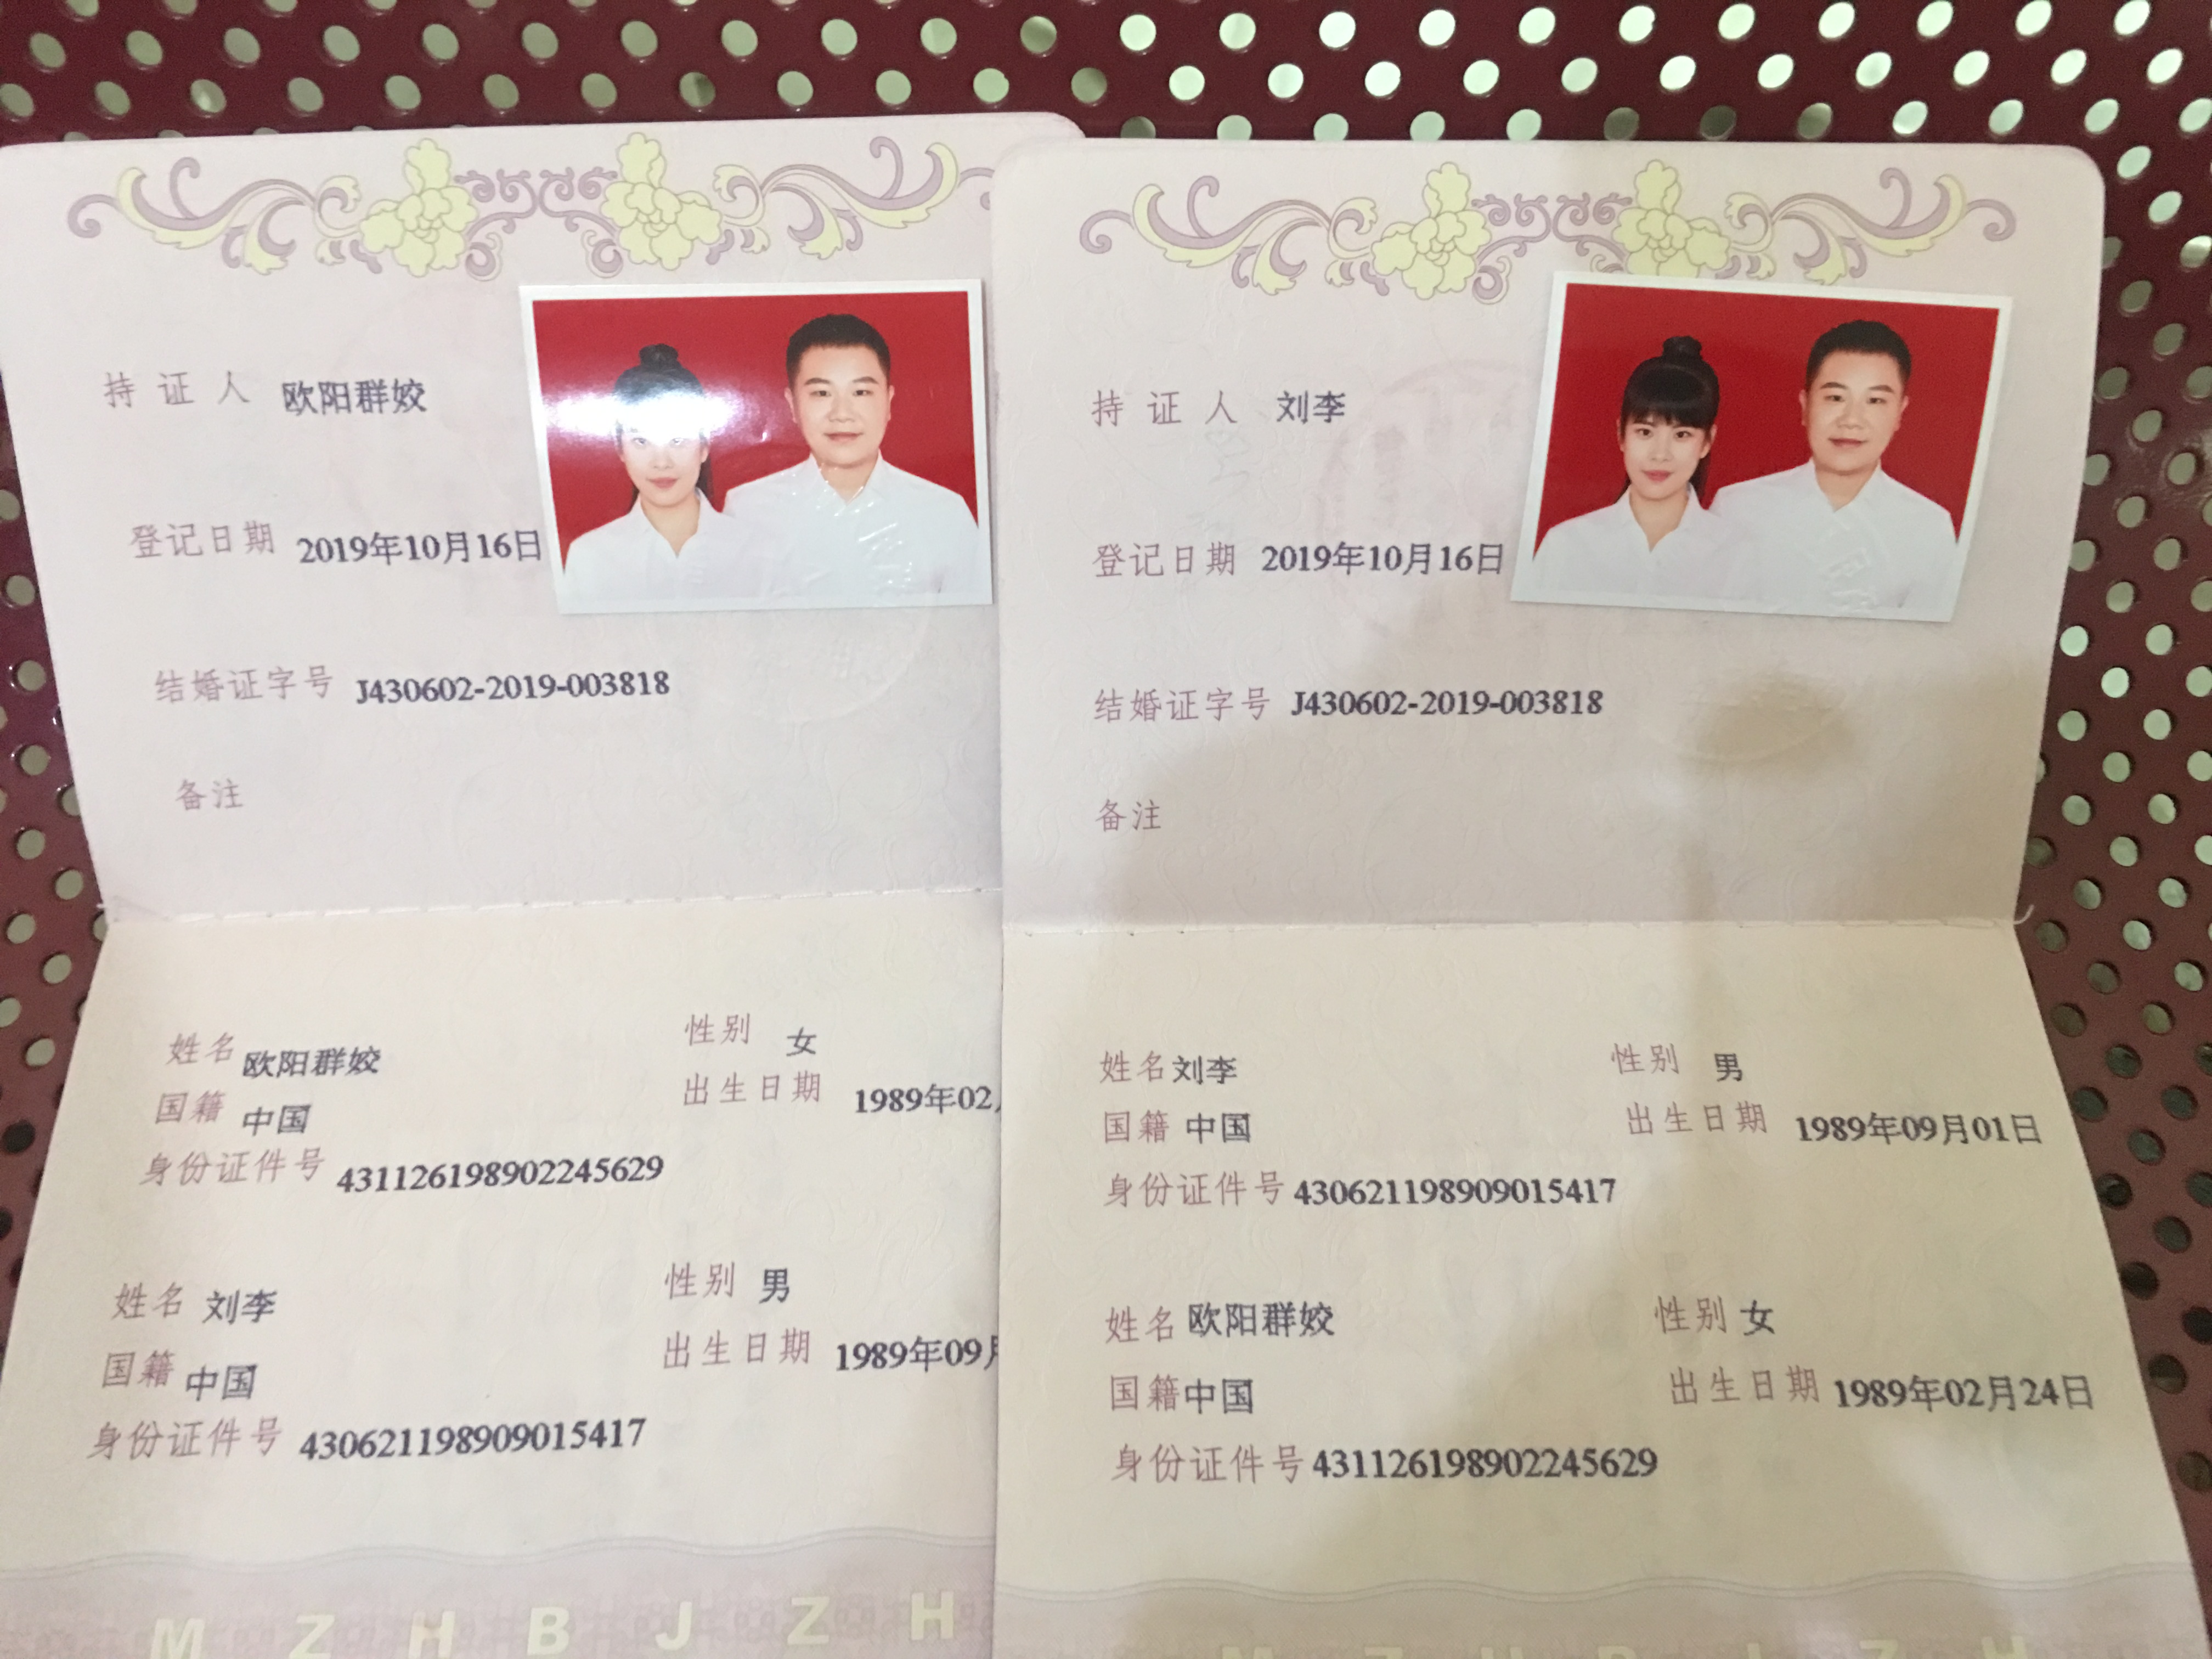 持证人 欧阳群姣
登记日期 2019年10月16日
结婚证字号 J430602-2019-003818
备注
姓名 欧阳群姣 性别 女
国籍 中国 出生日期 1989年02
身份证件号 431126198902245629
姓名 刘李 性别 男
国籍 中国 出生日期 1989年09月
身份证件号 430621198909015417
M Z H B J Z H
持证人 刘李
登记日期 2019年10月16日
结婚证字号 J430602-2019-003818
备注
姓名 刘李 性别 男
国籍 中国 出生日期 1989年09月01日
身份证件号 430621198909015417
姓名 欧阳群姣 性别 女
国籍 中国 出生日期 1989年02月24日
身份证件号 431126198902245629